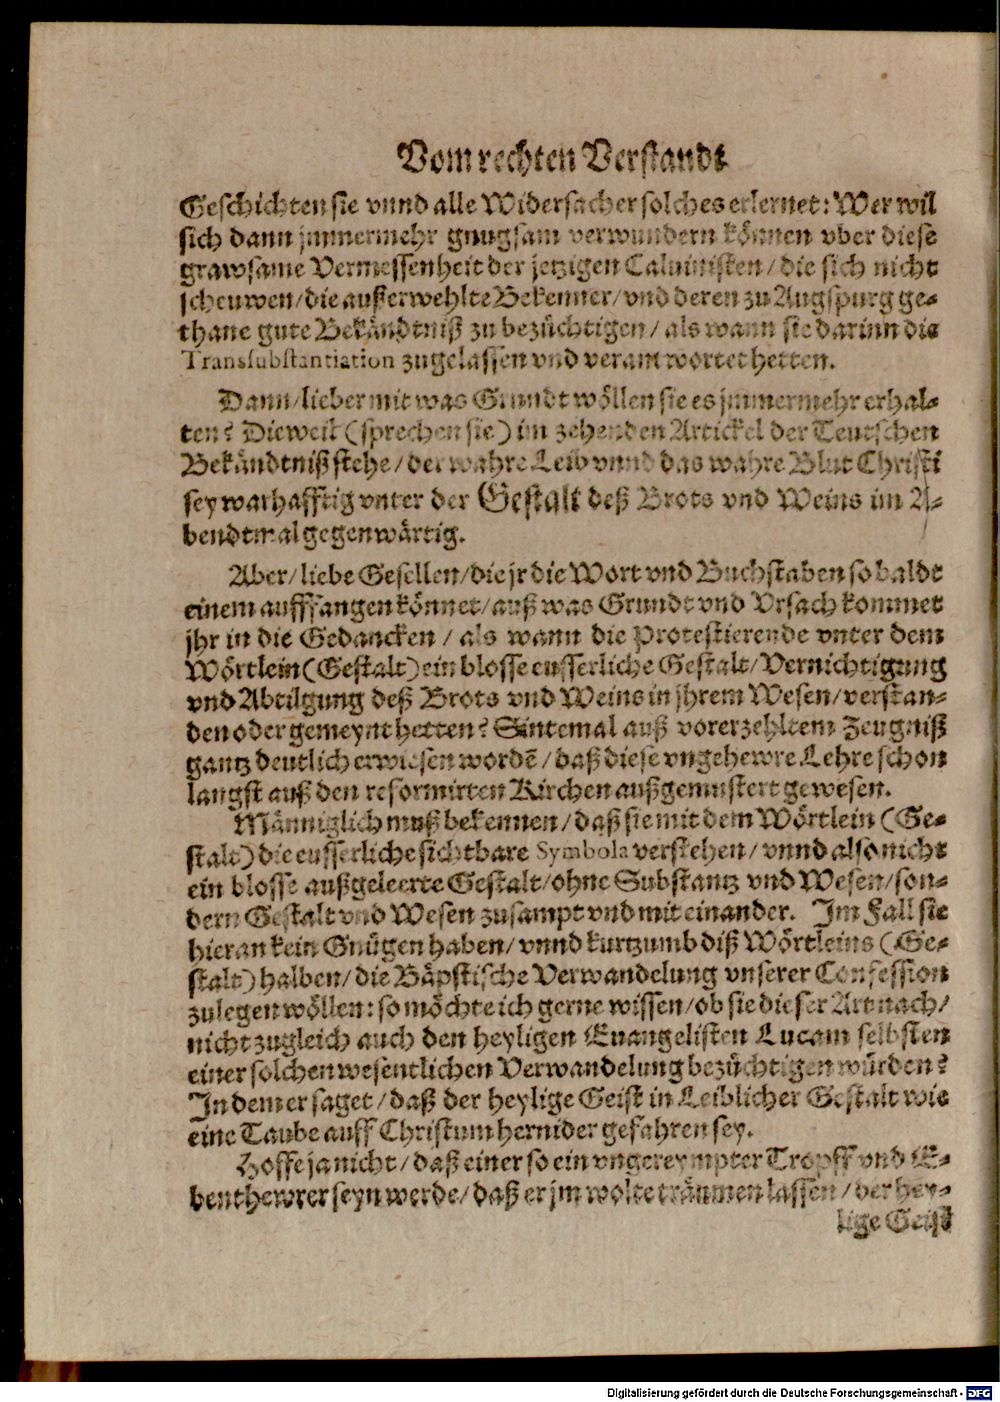 Vom rechten Verstandt
Geschichten sie vnnd alle Widersacher solches erlernet: Wer wil
sich dann jmmermehr gnugsam verwundern können vber diese
grawsame Vermessenheit der jetzigen Caluinisten/ die sich nicht
scheuwen/ die außerwehlte Bekenner/ vnd deren zu Augspurg ge-
thane gute Bekändtniß zu bezüchtigen/ als wann sie darinn die
Transsubstantiation zugelassen vnd verantwortet hetten.
Dann/ lieber mit was Grundt wöllen sie es jmmermehr erhal-
ten? Dieweil (sprechen sie) im zehenden Artickel der Teutschen
Bekändtniß stehe/ der wahre Leib vnnd das wahre Blut Christi
sey warhafftig vnter der Gestalt deß Brots vnd Weins im A-
bendtmal gegenwärtig.
Aber/ liebe Gesellen/ die jr die Wort vnd Buchstaben so baldt
einem aufffangen könnet/ auß was Grundt vnd Vrsach kommet
jhr in die Gedancken/ als wann die Protestierende vnter dem
Wörtlein (Gestalt) ein blosse eusserliche Gestalt/ Vernichtigung
vnd Abtilgung deß Brots vnd Weins in jhrem Wesen/ verstan-
den oder gemeynt hetten? Sintemal auß vorerzehltem Zeugniß
gantz deutlich erwiesen wordē/ daß diese vngehewre Lehre schon
langst auß den reformirten Kirchen außgemustert gewesen.
Männiglich muß bekennen/ daß sie mit dem Wörtlein (Ge-
stalt) die eusserliche sichtbare Symbola verstehen/ vnnd also nicht
ein blosse außgeleerte Gestalt/ ohne Substantz vnd Wesen/ son-
dern Gestalt vnd Wesen zusampt vnd mit einander. Im Fall sie
hieran kein Gnügen haben/ vnnd kurtzumb diß Wörtleins (Ge-
stalt) halben/ die Bäpstische Verwandelung vnserer Confession
zulegen wöllen: so möchte ich gerne wissen/ ob sie dieser Art nach/
nicht zugleich auch den heyligen Euangelisten Lucam selbsten
einer solchen wesentlichen Verwandelung bezüchtigen würden?
In dem er saget/ daß der heylige Geist in Leiblicher Gestalt wie
eine Taube auff Christum hernider gefahren sey.
Hoffe ja nicht/ daß einer so ein vngereympter Tropff vnd E-
benthewrer seyn werde/ daß er jm wolte träumen lassen/ der hey-
lige Geist
Digitalisierung gefördert durch die Deutsche Forschungsgemeinschaft - DFG